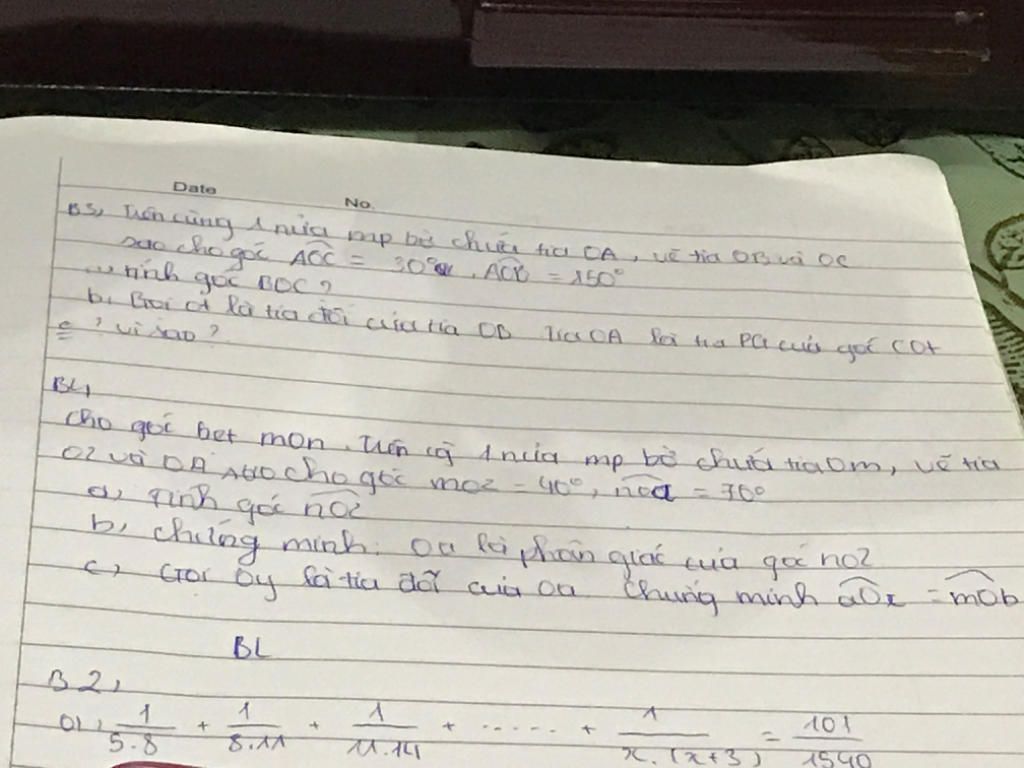 Date No.
B3, Trên cùng 1 nửa mp bờ chứa tia OA, vẽ tia OB và OC
sao cho góc AOC = 30°, AOB = 150°
tính góc BOC?
b, Gọi Ot là tia đối của tia OB tia OA là tia PG của góc COt
? vì sao?
B4,
cho góc bẹt mOn. Trên cg 1 nửa mp bờ chứa tia Om, vẽ tia
Oz và OA sao cho góc mOz = 40°, nOa = 70°
a, Tính góc nOz
b, chứng minh: Oa là phân giác của góc nOz
c, Gọi Oy là tia đối của Oa chứng minh aOz = mOb
BL
B2,
a, 1/5.8 + 1/8.11 + 1/11.14 + ...... + 1/x.(x+3) = 101/1540